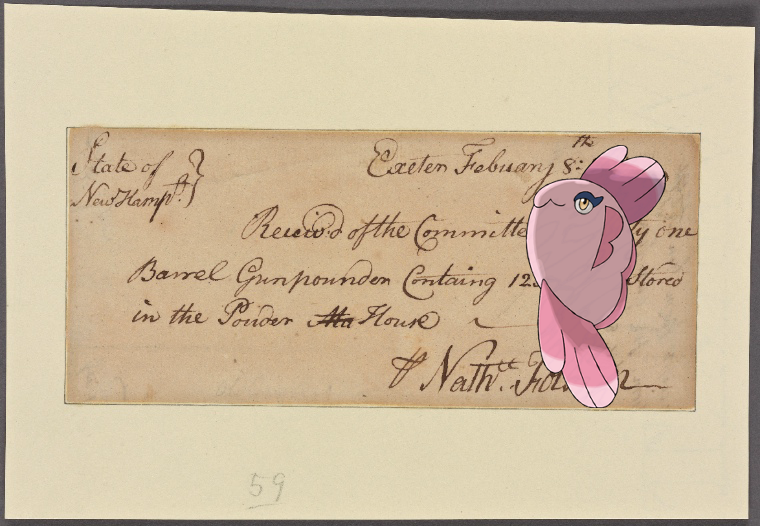 State of
New Hampre
Exeter Febuary 8th
Receiv'd of the Committe one
Barrel Gunpounder Containg Stored
in the Pouder House
Nathll
59